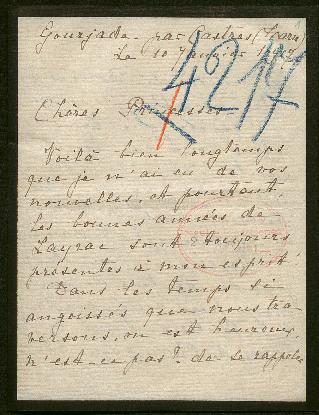 Gourjade par Castres (Tarn)
Le 10 Janvier 1917
4217
Chères Princesses
Voilà bien longtemps
que je n'ai eu de vos
nouvelles, et pourtant
les bonnes années de
Layrac sont toujours
présentes à mon esprit
Dans les temps si
angoissés que nous tra-
versons, on est heureux,
n'est-ce pas? de se rappeler